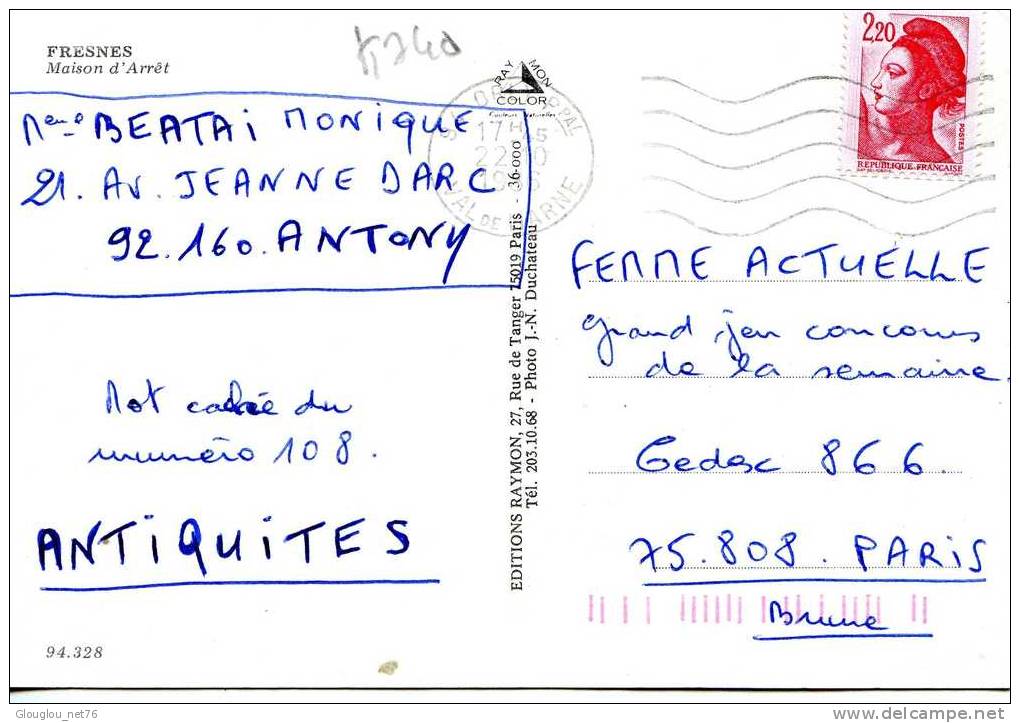 FRESNES
Maison d'Arrêt
RAYMON
COLOR
Couleurs Naturelles
17H
22-10
1986
VAL DE MARNE
2,20
POSTES
REPUBLIQUE FRANÇAISE
Mme BEATAi MONiQUE
21. AV. JEANNE DARC
92.160. ANTONY
Mot caché du
numéro 108.
ANTiQUiTES
94.328
EDITIONS RAYMON, 27, Rue de Tanger 75019 Paris - 36-000
Tél. 203.10.68 - Photo J.-N. Duchateau
FEMME ACTUELLE
grand jeu concours
de la semaine.
Cedex 866.
75.808. PARIS
Brune
Glouglou_net76